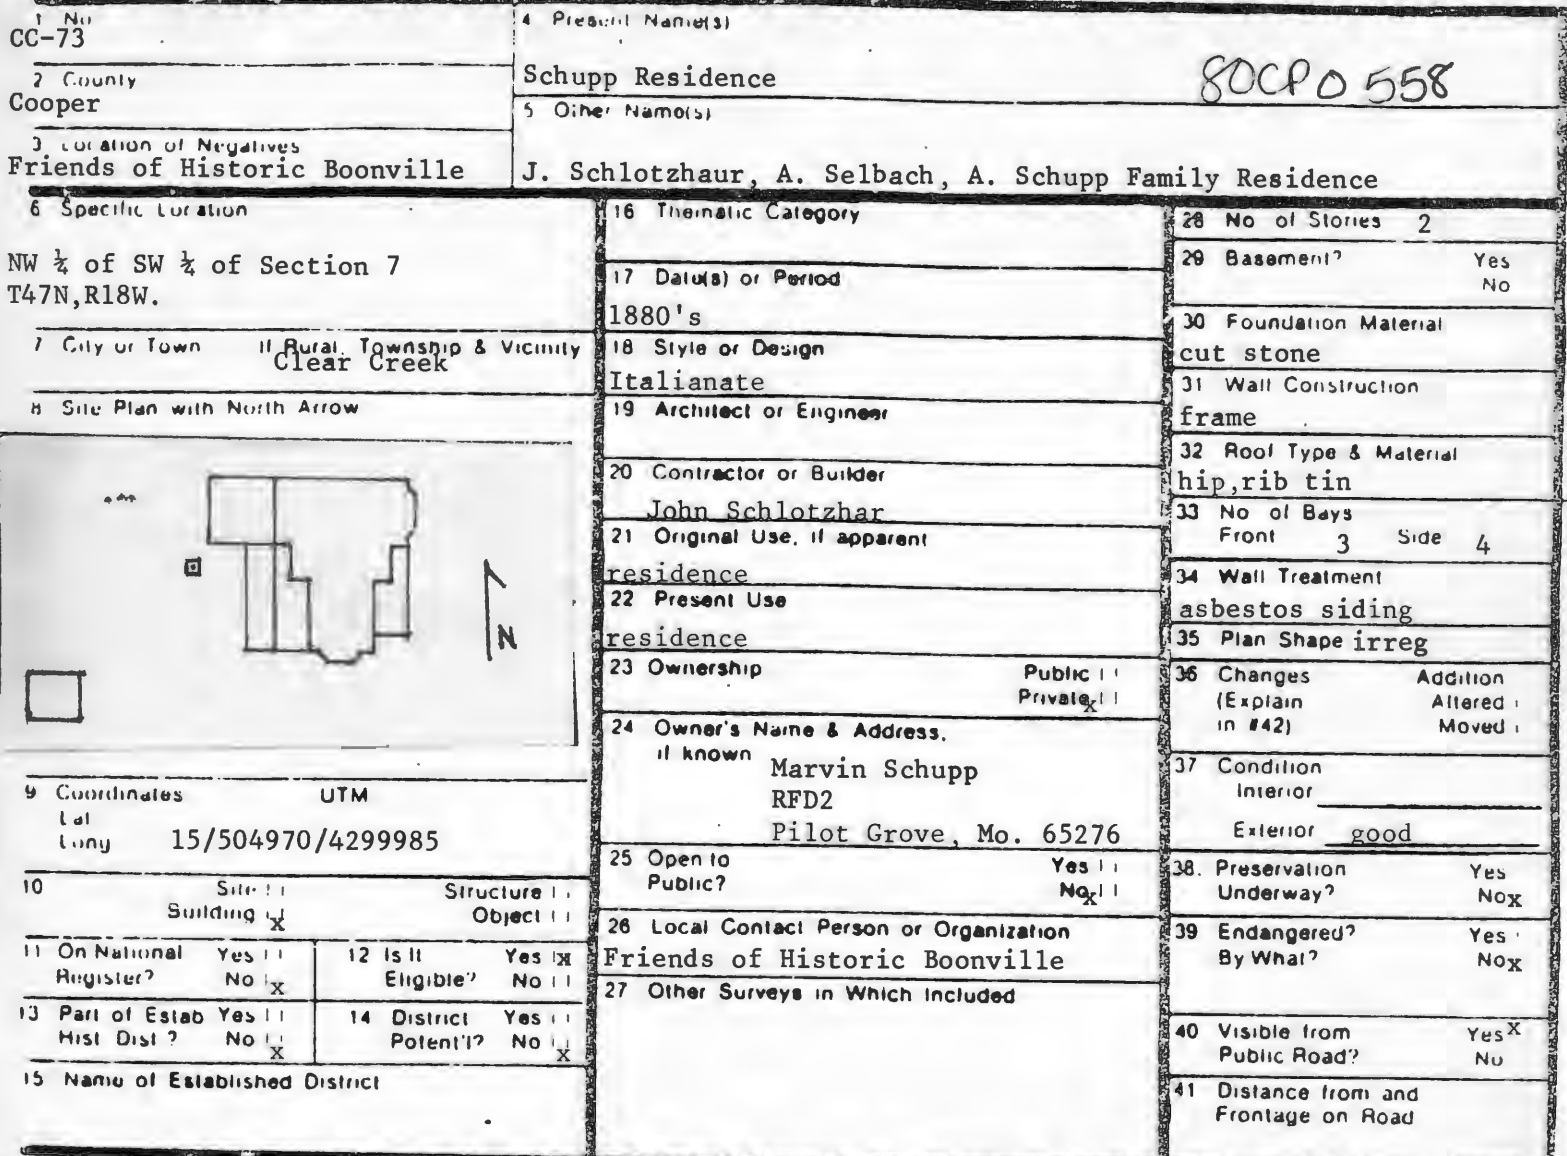 1 No
CC-73
2 County
Cooper
3 Location of Negatives
Friends of Historic Boonville
4 Present Name(s)
Schupp Residence
80CP0558
5 Other Name(s)
J. Schlotzhaur, A. Selbach, A. Schupp Family Residence
6 Specific Location
NW ¼ of SW ¼ of Section 7
T47N,R18W.
7 City or Town If Rural, Township & Vicinity
Clear Creek
8 Site Plan with North Arrow
N
9 Coordinates UTM
Lat
Long 15/504970/4299985
10 Site Structure
Building x Object
11 On National Yes
Register? No x
12 Is It Yes x
Eligible? No
13 Part of Estab Yes
Hist Dist ? No x
14 District Yes
Potent'l? No x
15 Name of Established District
16 Thematic Category
17 Date(s) or Period
1880's
18 Style or Design
Italianate
19 Architect or Engineer
20 Contractor or Builder
John Schlotzhar
21 Original Use, if apparent
residence
22 Present Use
residence
23 Ownership Public
Private x
24 Owner's Name & Address,
if known
Marvin Schupp
RFD2
Pilot Grove, Mo. 65276
25 Open to Yes
Public? No x
26 Local Contact Person or Organization
Friends of Historic Boonville
27 Other Surveys in Which Included
28 No of Stories 2
29 Basement? Yes
No
30 Foundation Material
cut stone
31 Wall Construction
frame
32 Roof Type & Material
hip,rib tin
33 No of Bays
Front 3 Side 4
34 Wall Treatment
asbestos siding
35 Plan Shape irreg
36 Changes Addition
(Explain Altered
in #42) Moved
37 Condition
Interior
Exterior good
38. Preservation Yes
Underway? No x
39 Endangered? Yes
By What? No x
40 Visible from Yes x
Public Road? No
41 Distance from and
Frontage on Road